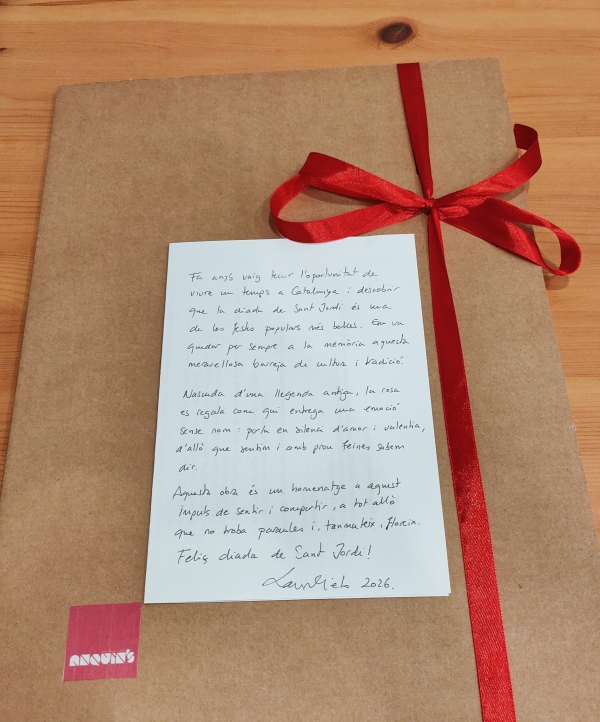 Fa anys vaig tenir l'oportunitat de
viure un temps a Catalunya i descobrir
que la diada de Sant Jordi és una
de les festes populars més belles. Em va
quedar per sempre a la memòria aquesta
meravellosa barreja de cultura i tradició.
Nascuda d'una llegenda antiga, la rosa
es regala com qui entrega una emoció
sense nom: parla en silenci d'amor i valentia,
d'allò que sentim i amb prou feines sabem
dir.
Aquesta obra és un homenatge a aquest
impuls de sentir i compartir, a tot allò
que no troba paraules i, tanmateix, floreix.
Feliç diada de Sant Jordi!
2026.
ANQUIN'S